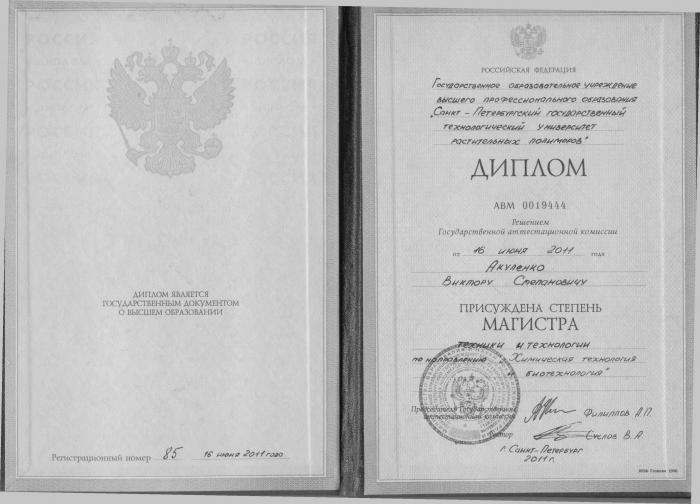 ДИПЛОМ ЯВЛЯЕТСЯ
ГОСУДАРСТВЕННЫМ ДОКУМЕНТОМ
О ВЫСШЕМ ОБРАЗОВАНИИ
Регистрационный номер 85 16 июня 2011 года
РОССИЙСКАЯ ФЕДЕРАЦИЯ
Государственное образовательное учреждение
высшего профессионального образования
"Санкт-Петербургский государственный
технологический университет
растительных полимеров"
ДИПЛОМ
АВМ 0019444
Решением
Государственной аттестационной комиссии
от 16 июня 2011 года
Акуленко
Виктору Степановичу
ПРИСУЖДЕНА СТЕПЕНЬ
МАГИСТРА
техники и технологии
по направлению "Химическая технология
и биотехнология"
Председатель Государственной
аттестационной комиссии Филиппов А.П.
Ректор Суслов В.А.
г. Санкт-Петербург
2011 г.